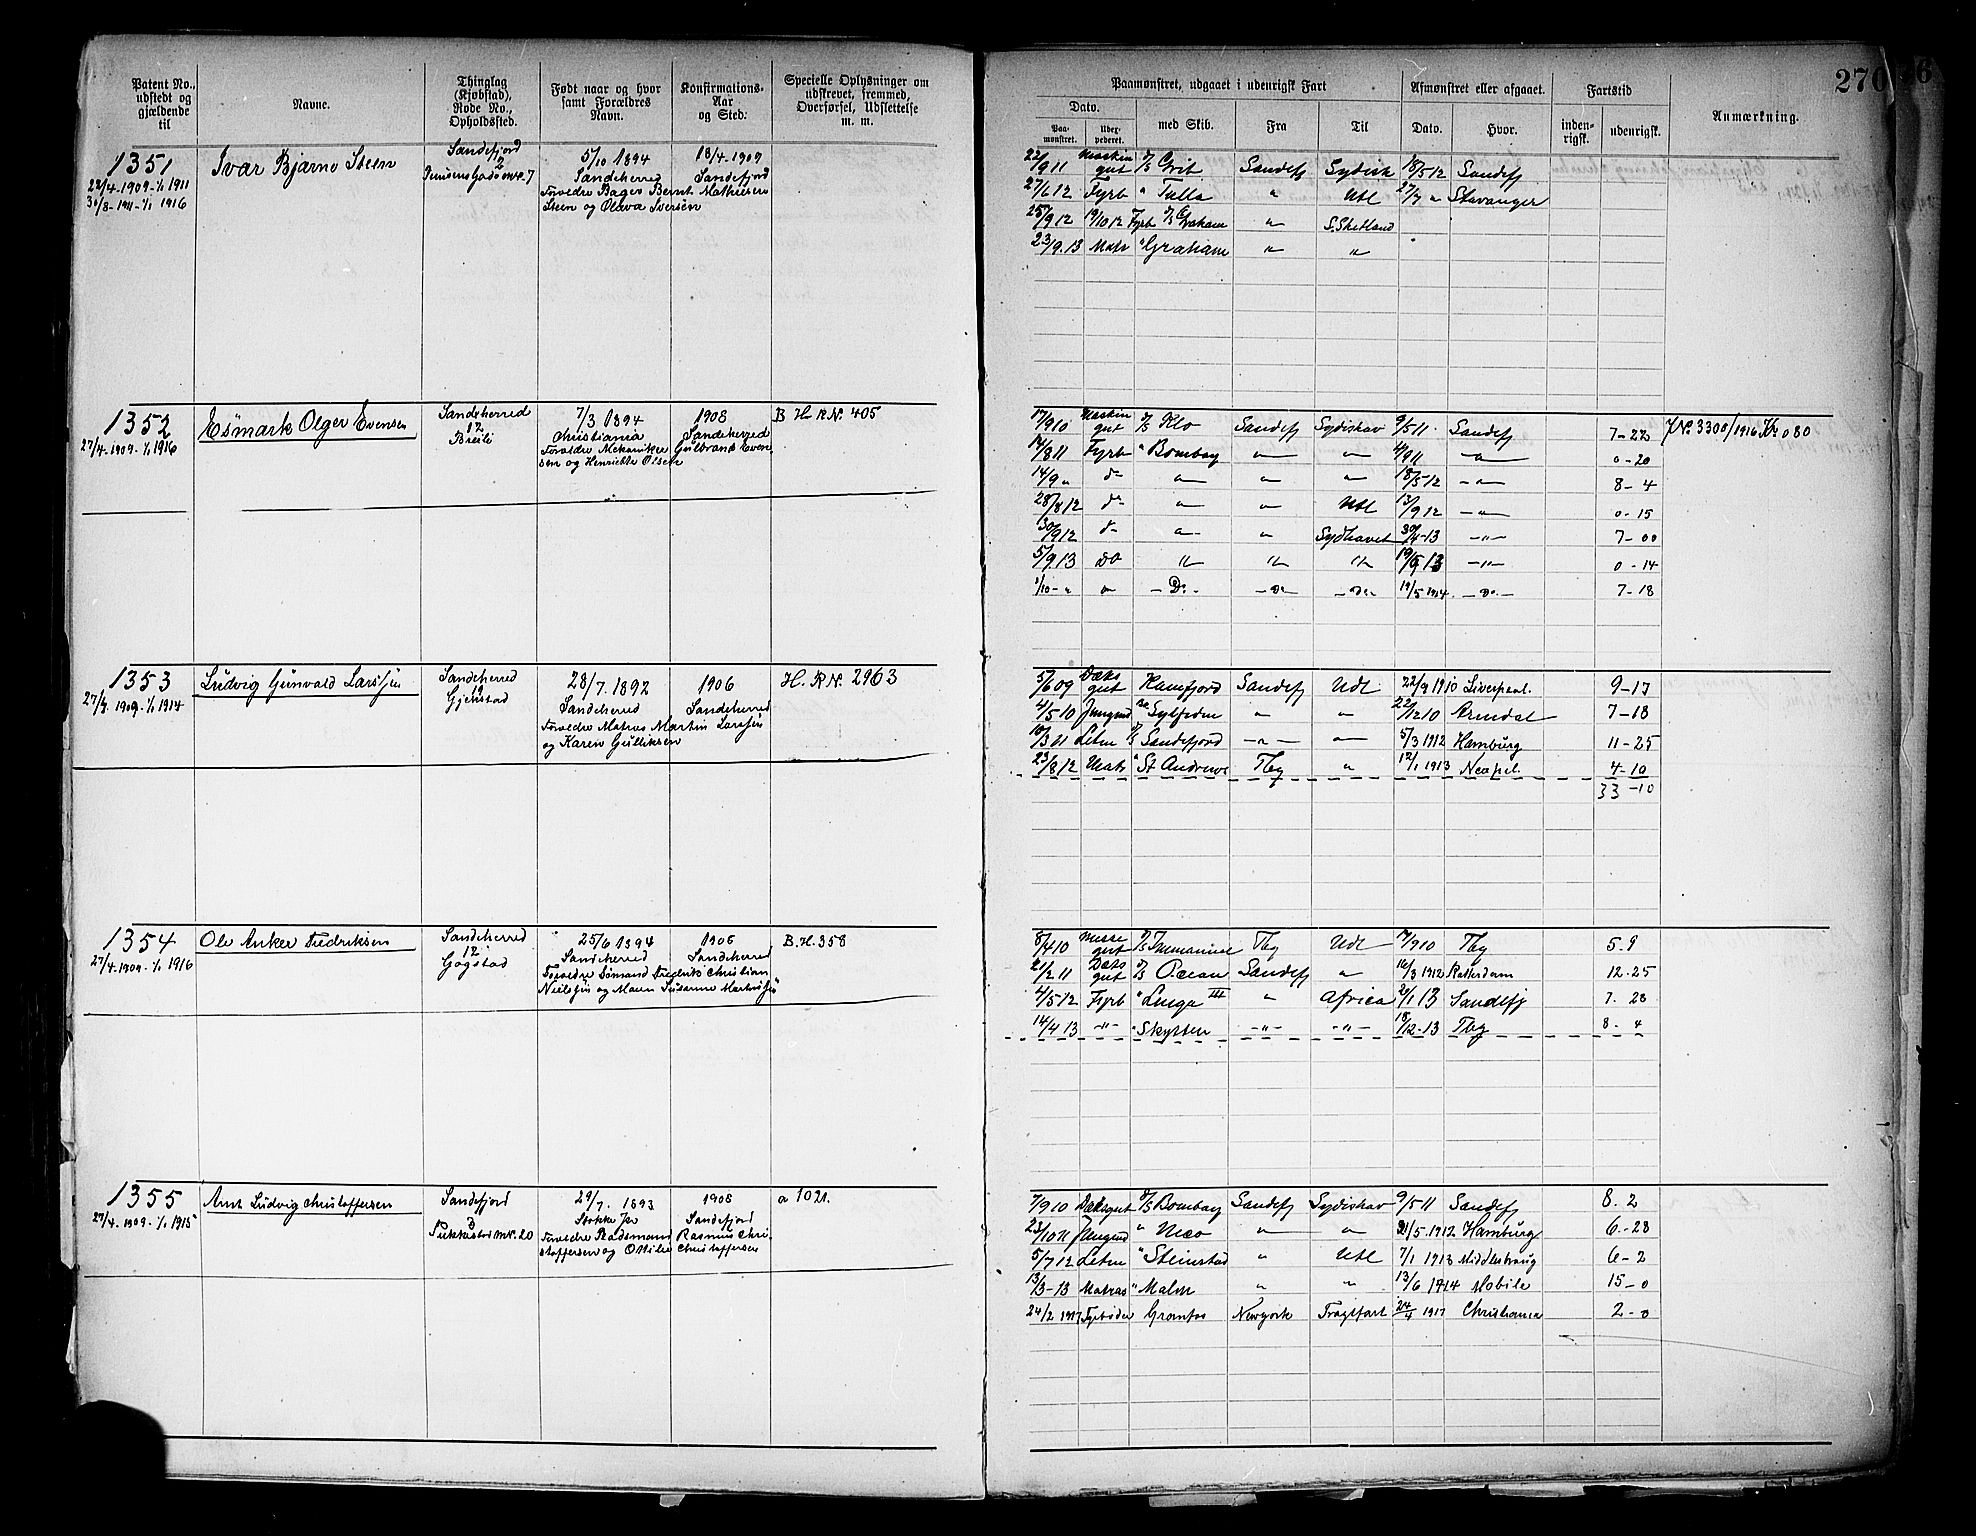 270
Patent No., udstedt og gjældende til
Navne.
Thinglag (Kjøbstad), Rode No., Opholdssted.
Født naar og hvor samt Forældres Navn.
Konfirmations-Aar og Sted.
Specielle Oplysninger om udskrevet, fremmed, Overførsel, Udslettelse m. m.
Paamønstret, udgaaet i udenrigsk Fart
Dato.
Paamønstret.
med Skib.
Fra
Til
Afmønstret eller afgaaet.
Dato.
Hvor.
Fartstid
indenrigsk.
udenrigsk.
Anmærkning.
1351
22/4.1909-1/1 1911
30/8-1911-1/1 1916
Ivar Bjarne Steen
Sandefjord
2
5/10 1894
Sandeherred
Forældre Bager Bernt Mathiesen
Steen og Olava Iversen
18/4-1909
Sandefjord
22/9 11 Maskin gut Grib Sandefj Sydish 18/5 12 Sandefj
27/6 12 Fyrb " Tulla " Utl 27/7 " Stavanger
25/9 12 19/10 12 Fyrb Graham " S. Shetland
23/9.13 Mats " Graham " "
1352
27/4.1909-1/1 1916
Esmark Olger Evensen
Sandeherred
12
7/3 1894
Christiania
Forældre Mekaniker Gulbrand Evensen og Henriette Olsen
1908
Sandeherred
B H R N. 405
17/9 10 Maskin gut Klo Sandefj Sydishav 9/5 11. Sandefj 7-22 JN. 3300/1916 Kr 0 80
14/8 11 Fyrb " Bombay " " 4/9 11 " 0-20
14/9 " do " " " 18/5-12 " 8-4
28/8 12 do " " Utl 13/9 12 " 0-15
30/9 12 do " " Sydhavet 30/4-13 " 7-00
5/9.13 DO " " " 19/9 13 " 0-14
1/10- " " Do. Do Do 19/5 1914. Do. 7-18
1353
27/4.1909-1/1 1914
Ludvig Gunvald Larssen
Sandeherred
Gjekstad
28/7. 1892
Sandeherred
Forældre Matros Martin Larssen
og Karen Gulliksen
1906
Sandeherred
H. R N. 2963
5/6 09 Dæks gut Ramfjord Sandefj Udl 22/4 1910 Liverpool. 9-17
4/5 10 Jungmd Sylfiden " " 22/12 10 Arendal 7-18
10/3 11 Letm Sandefjord " " 5/3 1912 Hamburg 11-25
23/8 12 Mats " St Andrews Tbg " 12/1 1913 Neapel. 4-10
33-10
1354
27/4.1909-1/1 1916
Ole Anker Fredriksen
Sandeherred
12
Gogstad
25/6 1894
Sandeherred
Forældre Sømand Fredrik Christian
Nielsen og Maren Susanne Martinsen
1908
Sandeherred
B.H. 358
8/4 10 Messe gut Immanuel Tbg Udl 7/9 10 Tbg 5.9
21/2 11 Dæks gut Ocean Sandefj " 16/3 1912 Rotterdam 12.25
4/5 12 Fyrb " Linge III " Africa 2/1 13 Sandefj 7.28
14/4 13 " " Skytten " " 18/12-13 Tbg 8-4
1355
27/4.1909-1/1 1915
Arnt Ludvig Christoffersen
Sandefjord
3
Pukkestad mr. 20
29/7. 1893
Stokke
Forældre Baadsmand Rasmus Christoffersen og Ottilie Christoffersen
1908
Sandefjord
a 1021.
7/9 10 Dæksgut Bombay Sandefj Sydishav 9/5 11 Sandefj 8.2
23/10 11 Jungmd " Nico " " 31/5.1912 Hamburg 6-28
5/7 12 Letm " Steinstad " Utl 7/1 1913 Middlesbraug 6-2
13/3-13 Matros " Malm " " 13/6 1914 Mobile 15-0
24/2 1917 Fyrbøder Gromtos Newyork Fragtfart 24/4 1917 Christiania 2-0